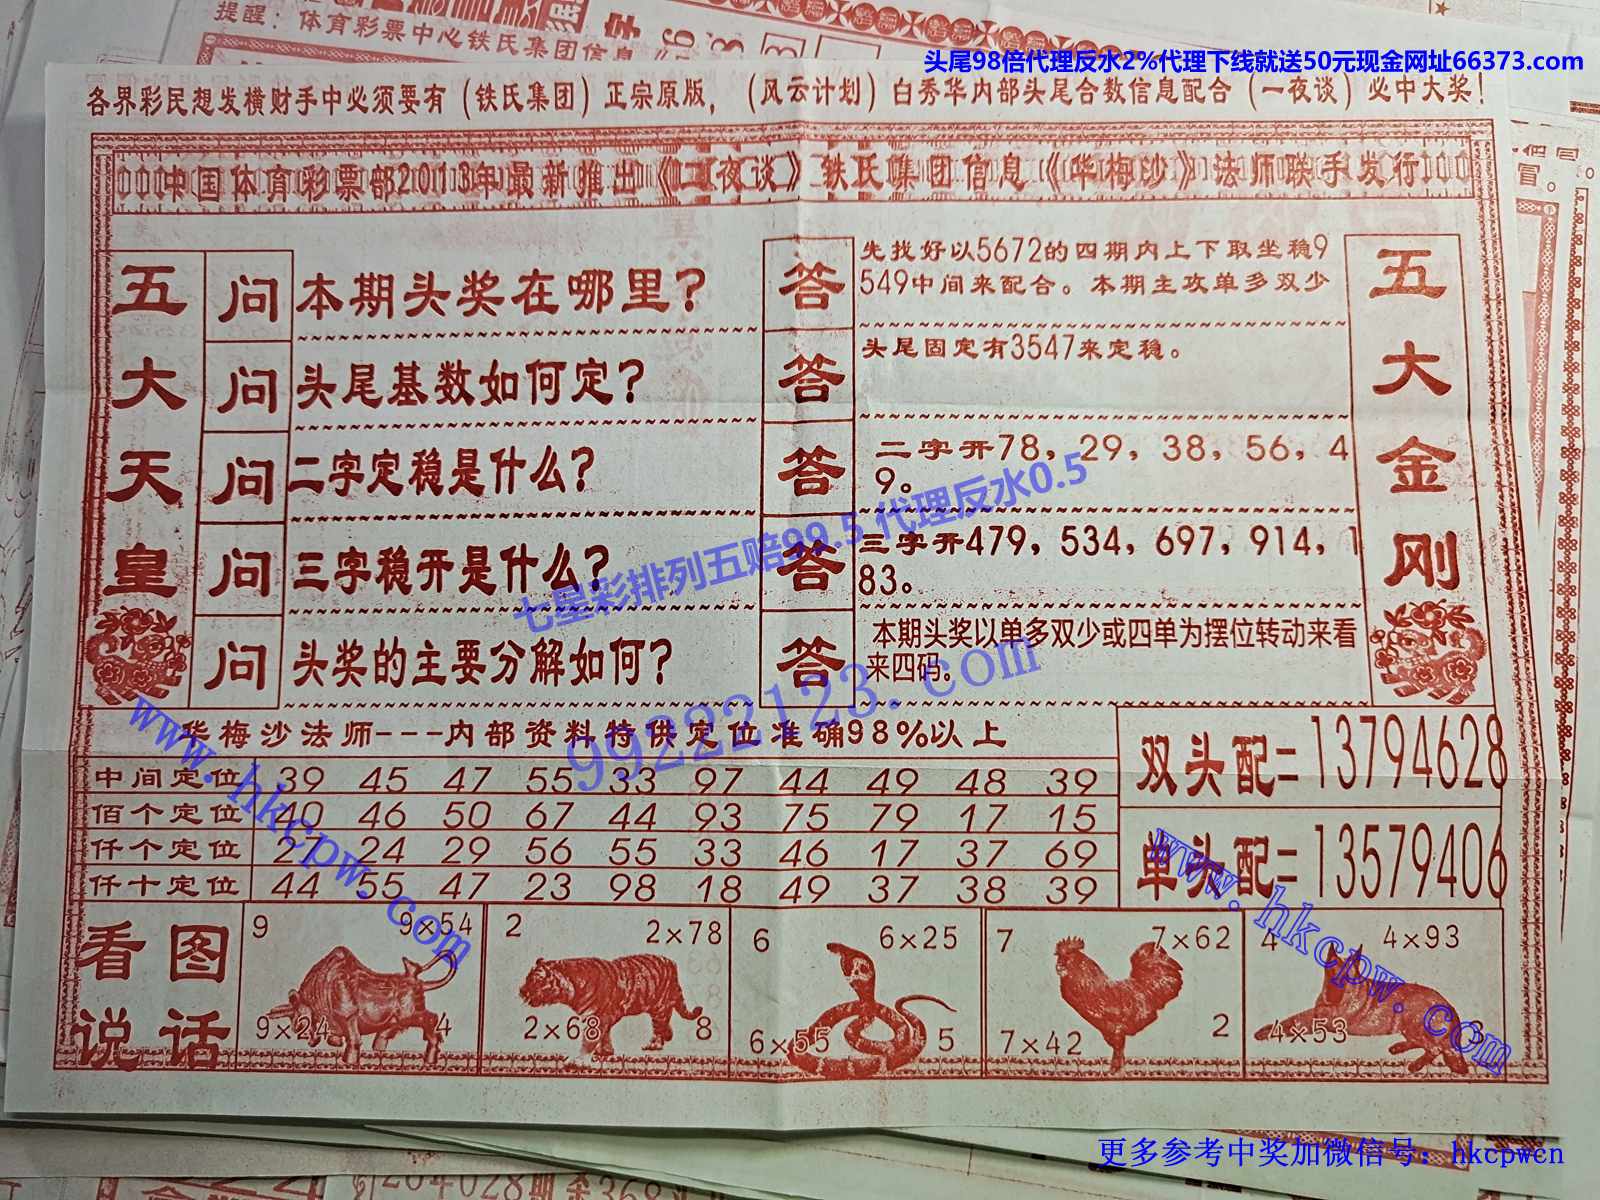 提醒：体育彩票中心铁氏集团信息
头尾98倍代理反水2%代理下线就送50元现金网址66373.com
各界彩民想发横财手中必须要有（铁氏集团）正宗原版，（风云计划）白秀华内部头尾合数信息配合（一夜谈）必中大奖！
中国体育彩票部2013年最新推出《一夜谈》铁氏集团信息《华梅沙》法师联手发行
五大天皇
问 本期头奖在哪里？
答 先找好以5672的四期内上下取坐稳9
549中间来配合。本期主攻单多双少
问 头尾基数如何定？
答 头尾固定有3547来定稳。
问 二字定稳是什么？
答 二字开78，29，38，56，4
9。
问 三字稳开是什么？
答 三字开479，534，697，914，1
83。
问 头奖的主要分解如何？
答 本期头奖以单多双少或四单为摆位转动来看
来四码。
五大金刚
七星彩排列五赔99.5 代理反水0.5
99222123.com
www.hkcpw.com
华梅沙法师---内部资料特供定位准确98%以上
中间定位 39 45 47 55 33 97 44 49 48 39
佰个定位 40 46 50 67 44 93 75 79 17 15
仟个定位 27 24 29 56 55 33 46 17 37 69
仟十定位 44 55 47 23 98 18 49 37 38 39
双头配=13794628
单头配=13579406
www.hkcpw.com
看图
说话
9 9×54
9×24 4
2 2×78
2×68 8
6 6×25
6×55 5
7 7×62
7×42 2
4 4×93
4×53 3
更多参考中奖加微信号：hkcpwcn